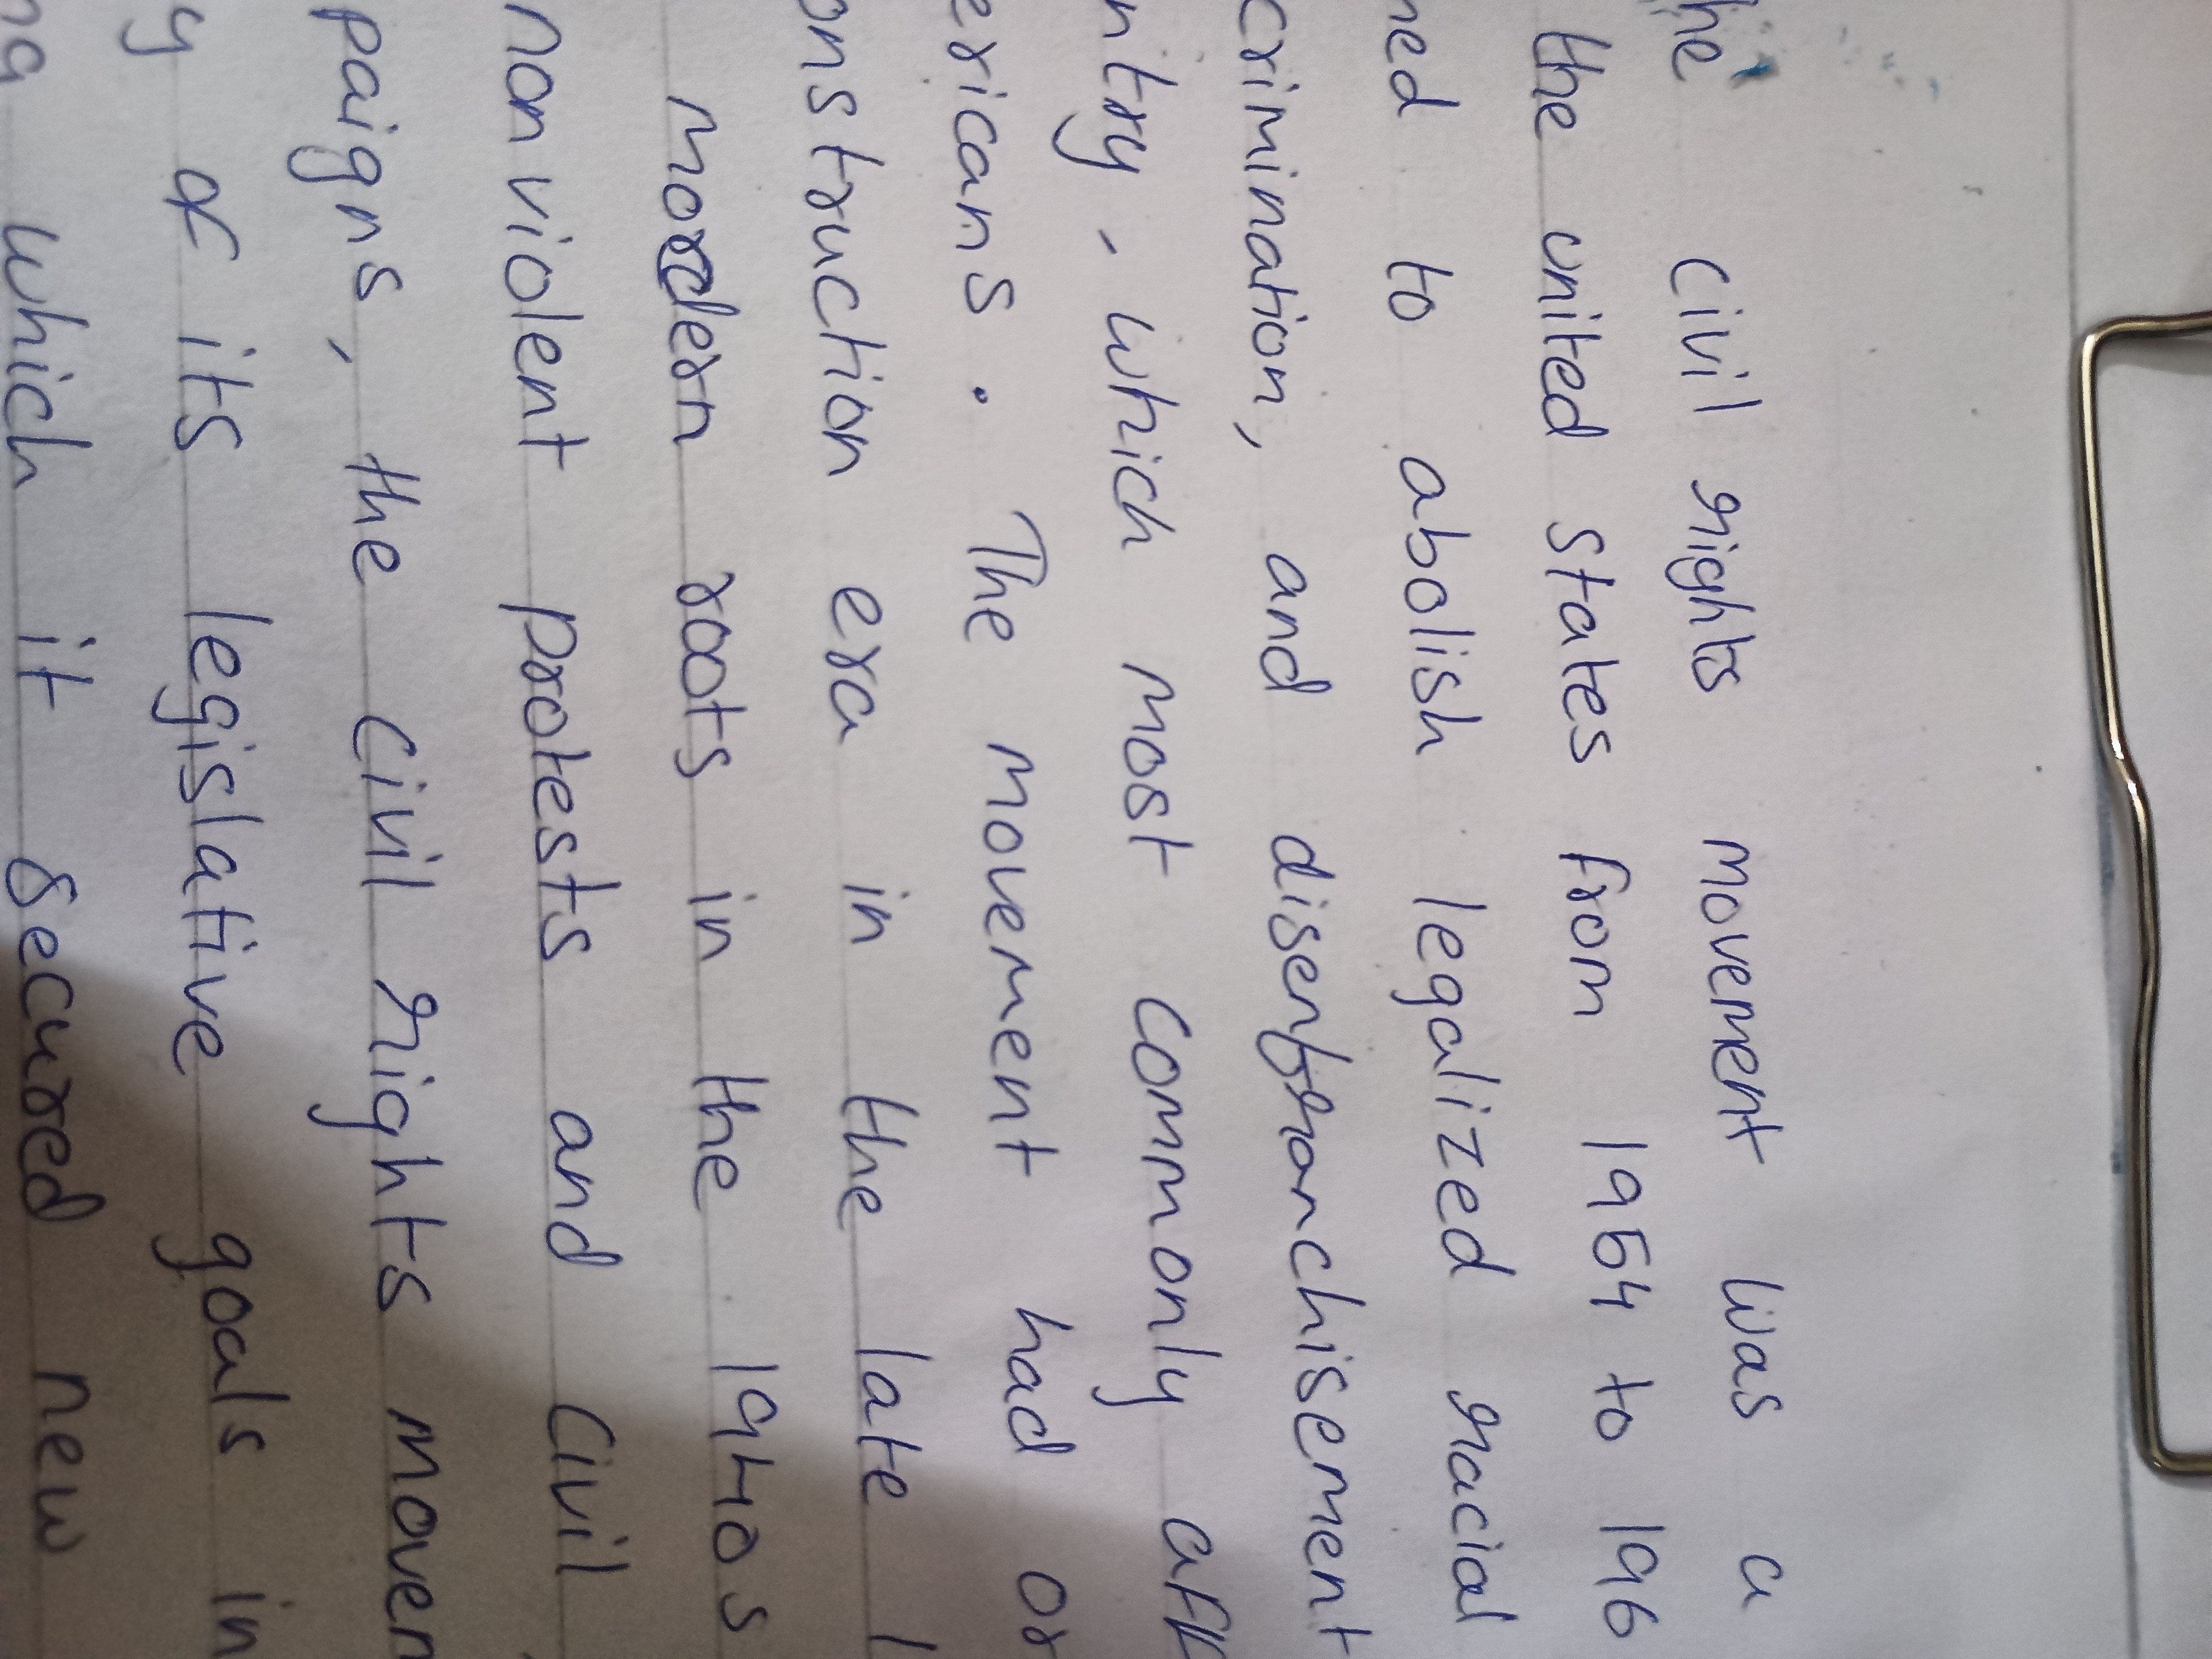 he civil rights movement was a
the united states from 1954 to 196
ned to abolish legalized racial
crimination, and disenfranchisement
ntry, which most commonly aff
ericans. The movement had or
onstruction era in the late 1
modern roots in the 1940s
nonviolent protests and civil
paigns, the civil rights movem
y of its legislative goals in
na which it secured new